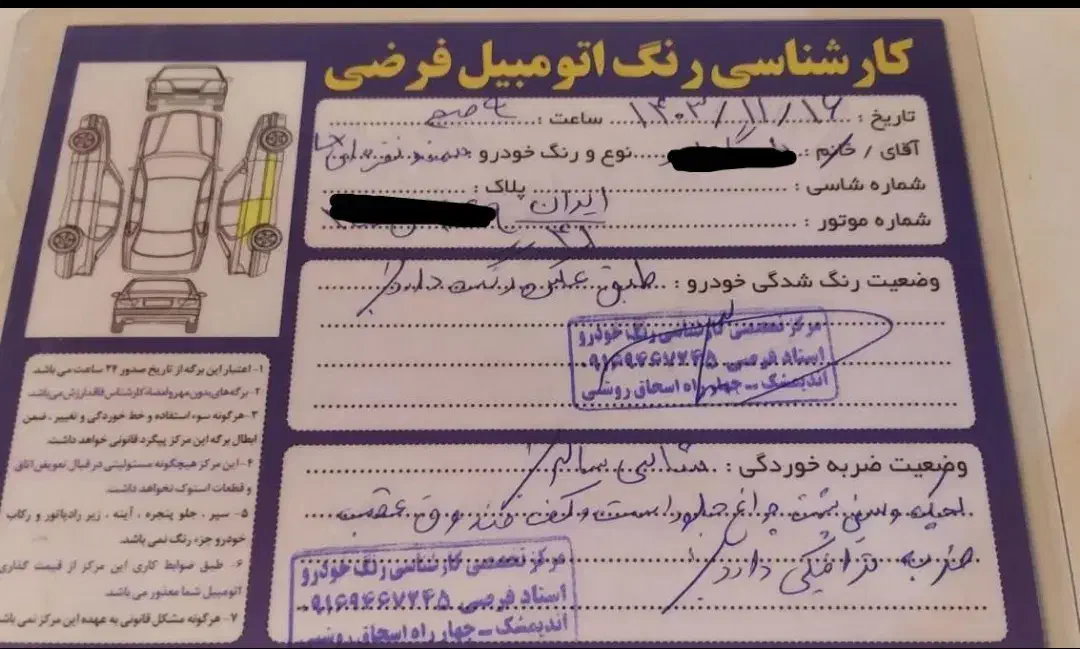 کارشناسی رنگ اتومبیل فرضی
تاریخ : ۱۴۰۳/۱۱/۱۶ ساعت : ۹ صبح
آقای / خانم : نوع و رنگ خودرو سمند نقره ای
شماره شاسی : پلاک :
شماره موتور : ایران
وضعیت رنگ شدگی خودرو : طبق عکس رنگ دارد
مرکز تخصصی کارشناسی رنگ خودرو
استاد فرضی ۰۹۱۶۹۴۶۷۲۴۵
اندیمشک - چهار راه اسحاق روشنی
وضعیت ضربه خوردگی : شاسی سالم
لچکی و سینی پشت چراغ جلو راست و کف صندوق عقب
ضربه ترافیکی دارد
مرکز تخصصی کارشناسی رنگ خودرو
استاد فرضی ۰۹۱۶۹۴۶۷۲۴۵
اندیمشک - چهار راه اسحاق روشنی
۱- اعتبار این برگه از تاریخ صدور ۲۴ ساعت می باشد.
۲- برگه های بدون مهر و امضاء کارشناس فاقد ارزش می باشد.
۳- هرگونه سوء استفاده و خط خوردگی و تغییر ، ضمن
ابطال برگه این مرکز پیگرد قانونی خواهد داشت.
۴- این مرکز هیچگونه مسئولیتی در قبال تعویض اتاق
و قطعات استوک نخواهد داشت.
۵- سپر ، جلو پنجره ، آینه ، زیر رادیاتور و رکاب
خودرو جزء رنگ نمی باشد.
۶- طبق ضوابط کاری این مرکز از قیمت گذاری
اتومبیل شما معذور می باشد.
۷- هرگونه مشکل قانونی به عهده این مرکز نمی باشد